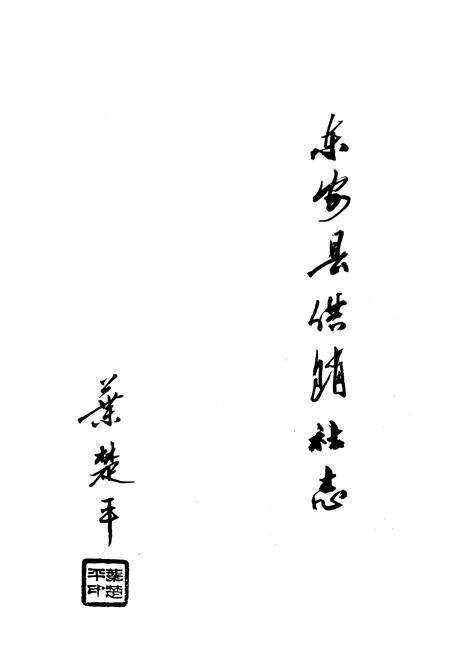 东安县供销社志
葉楚平
葉楚平印